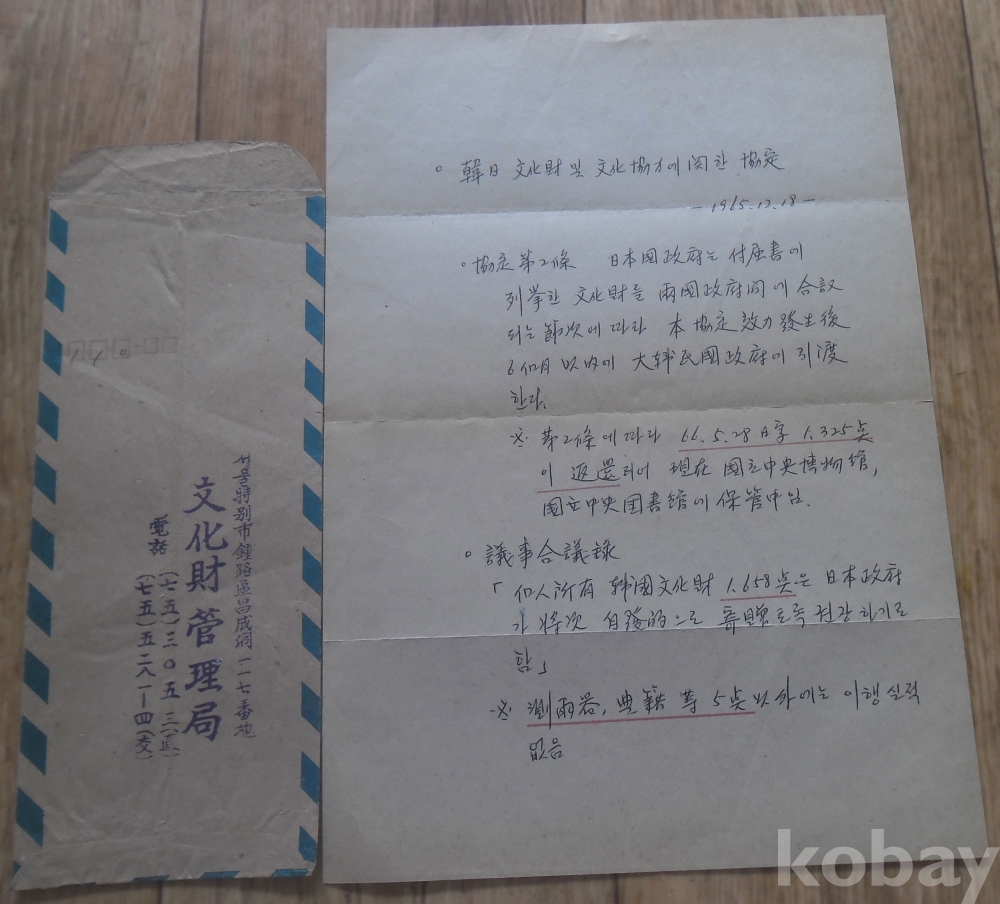 서울特別市鍾路區昌成洞一一七番地
文化財管理局
電話
(七五)三〇五三(直)
(七五)五二八一-四(交)
110
◦ 韓日 文化財 및 文化協力에 関한 協定
- 1965.12.18 -
◦ 協定 第2條 日本國政府는 付属書에
列挙한 文化財를 兩國政府間에 合議
되는 節次에 따라 本 協定 效力發生後
6個月 以内에 大韩民國政府에 引渡
한다.
※. 第2條에 따라 66.5.28日字 1.325点
이 返還되어 現在 國立中央博物館,
國立中央図書館에 保管中임.
◦ 議事合議録
「個人所有 韩國文化財 1.658点은 日本政府
가 将次 自發的으로 寄贈토록 권장하기로
함」
※. 測雨器, 典籍 等 5点以外에는 이행실적
없음
kobay